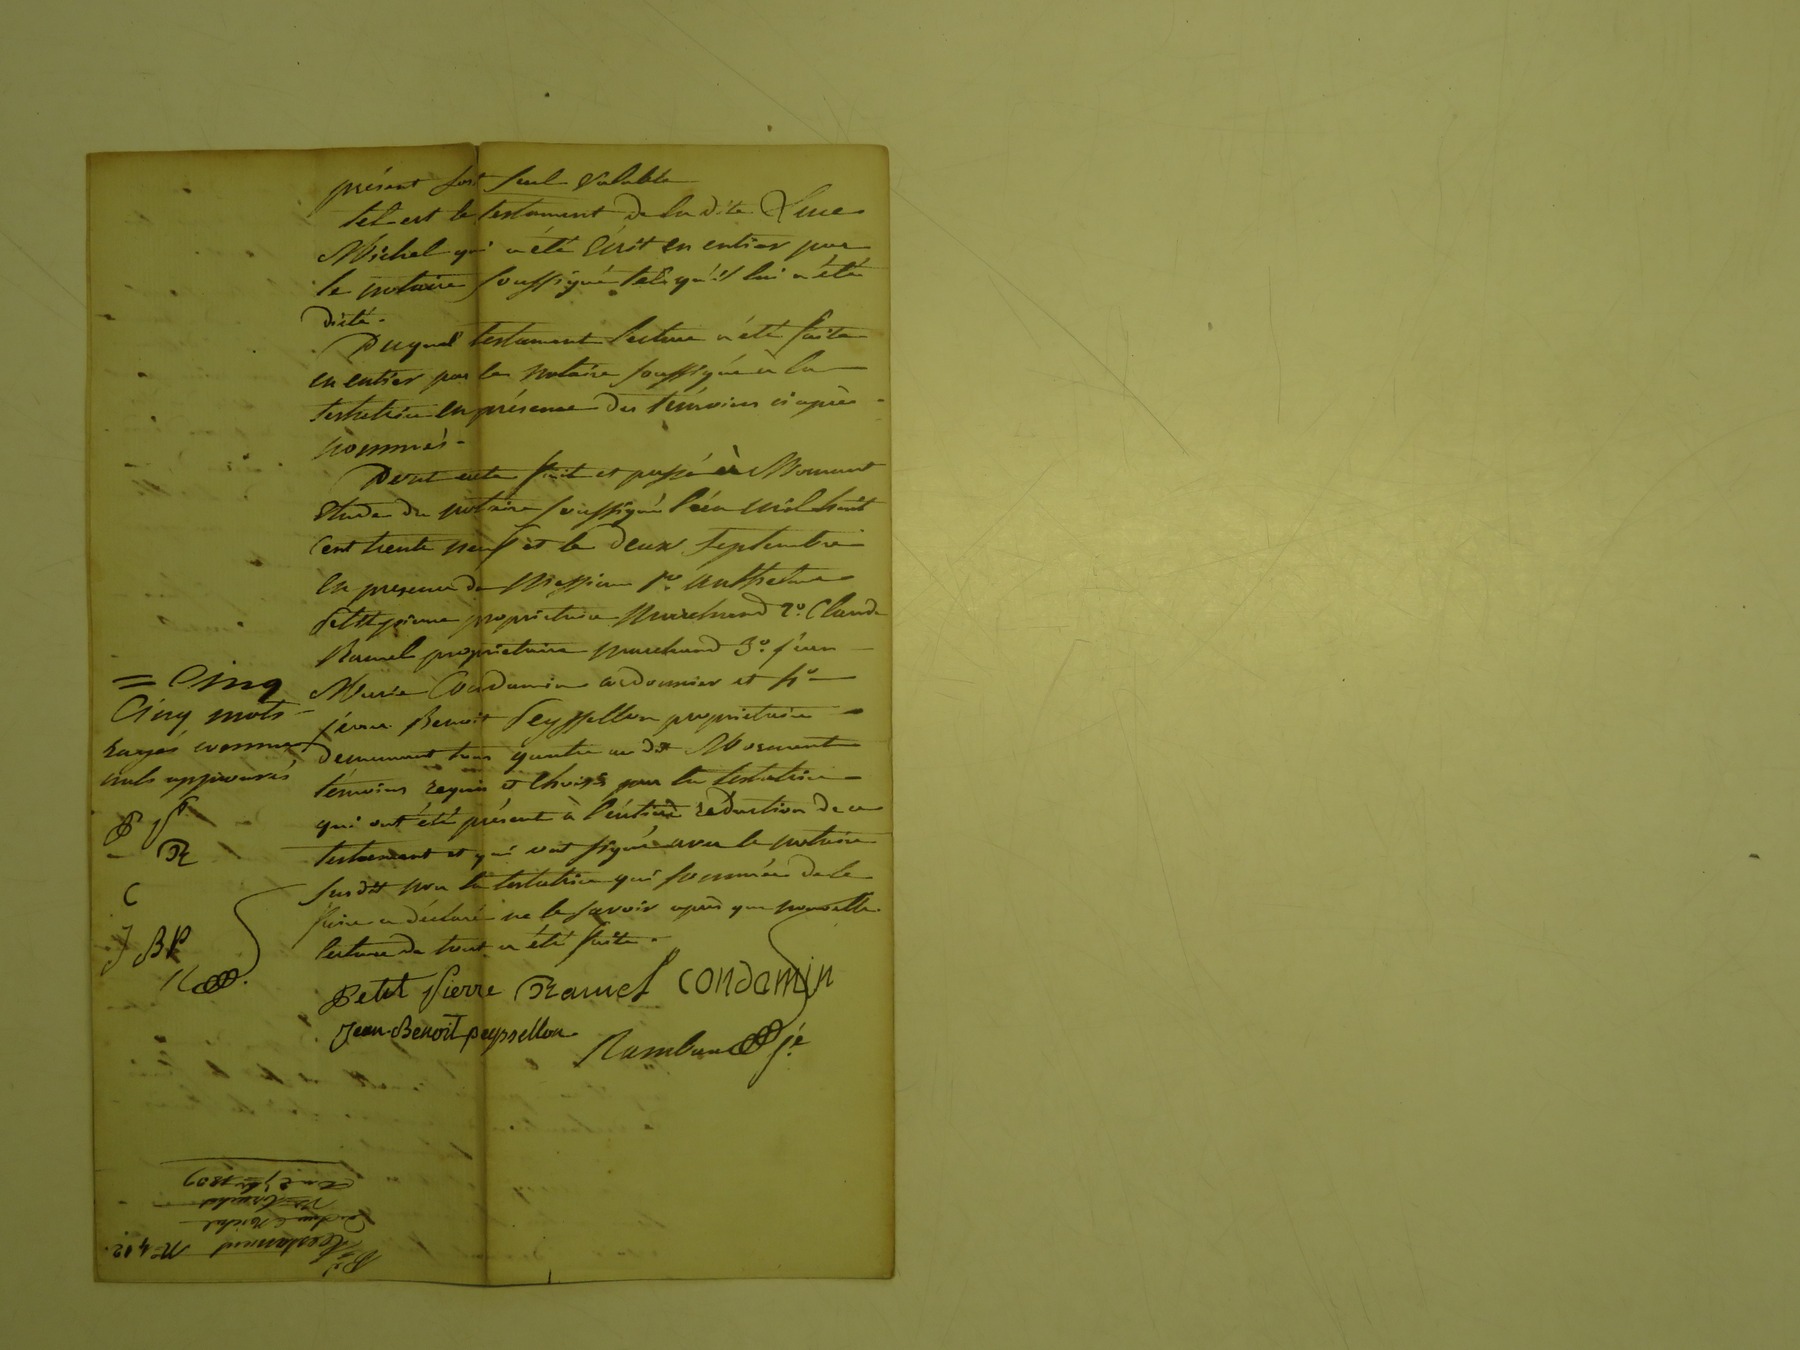 présent soit seul valable
tel est le testament de la dite Luce
Michel qui a été écrit en entier par
le notaire soussigné tel qu'il lui a été
dicté.
Duquel testament lecture a été faite
en entier par le notaire soussigné à la
testatrice en présence des témoins ci après
nommés.
Dont acte fait et passé à Mornant
étude du notaire soussigné l'an mil huit
cent trente neuf et le deux septembre
en presence de Messieurs 1º. Anthelme
Petitpierre propriétaire marchand 2º. Claude
Ramel propriétaire marchand 3º. jean
Marie Condamin cordonnier et 4º
jean Benoit Peyssellon propriétaire
demeurant tous quatre au dit Mornant
témoins requis et choisis par la testatrice
qui ont été présents à l'entière rédaction de ce
testament et qui ont signé avec le notaire
susdit non la testatrice qui sommée de le
faire a déclaré ne le savoir après que nouvelle
lecture du tout a été faite.
= Cinq
Cinq mots
rayés comme
nuls approuvés
P P
R
C
J BP
R
Petit Pierre Ramel Condamin
Jean-Benoit peyssellon
Rambaud
testament Nº 402.
Michel